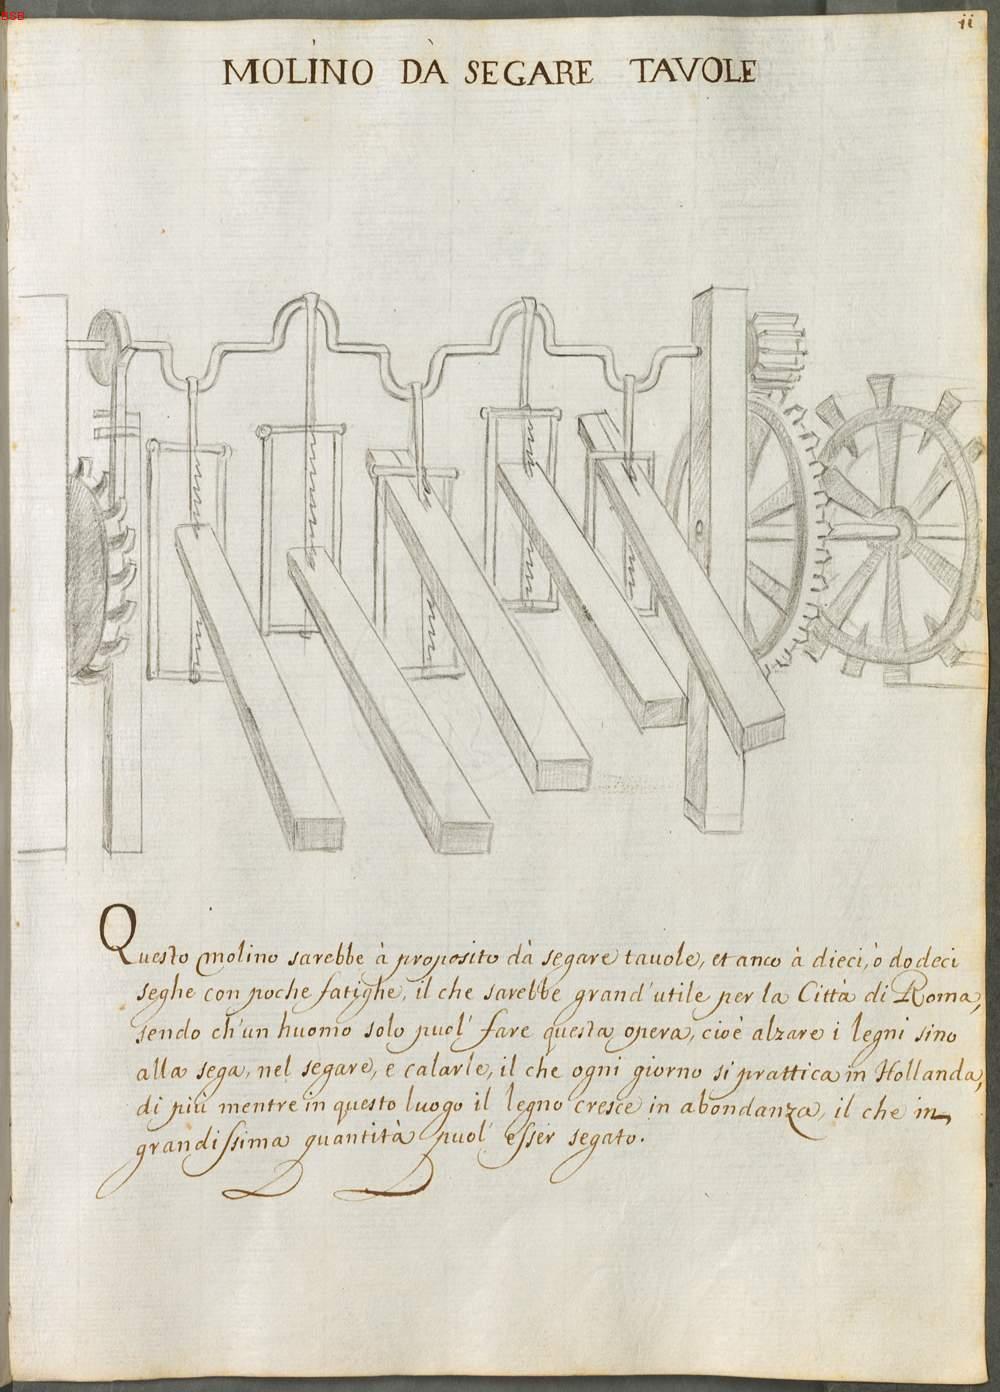 BSB
ii
MOLINO DÀ SEGARE TAVOLE
Questo molino sarebbe à proposito dà segare tauole, et anco à dieci, ò dodeci
seghe con poche fatighe, il che sarebbe grand'utile per la Città di Roma,
sendo ch'un huomo solo puol' fare questa opera, cioè alzare i legni sino
alla sega, nel segare, e calarle, il che ogni giorno si prattica in Hollanda,
di più mentre in questo luogo il legno cresce in abondanza, il che in
grandissima quantità puol' esser segato.